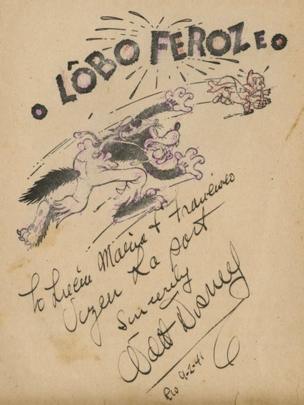 O LÔBO FEROZ E O
To Lucia Maria + Francisco
Sincerely
Walt Disney
Rio 9-2-41